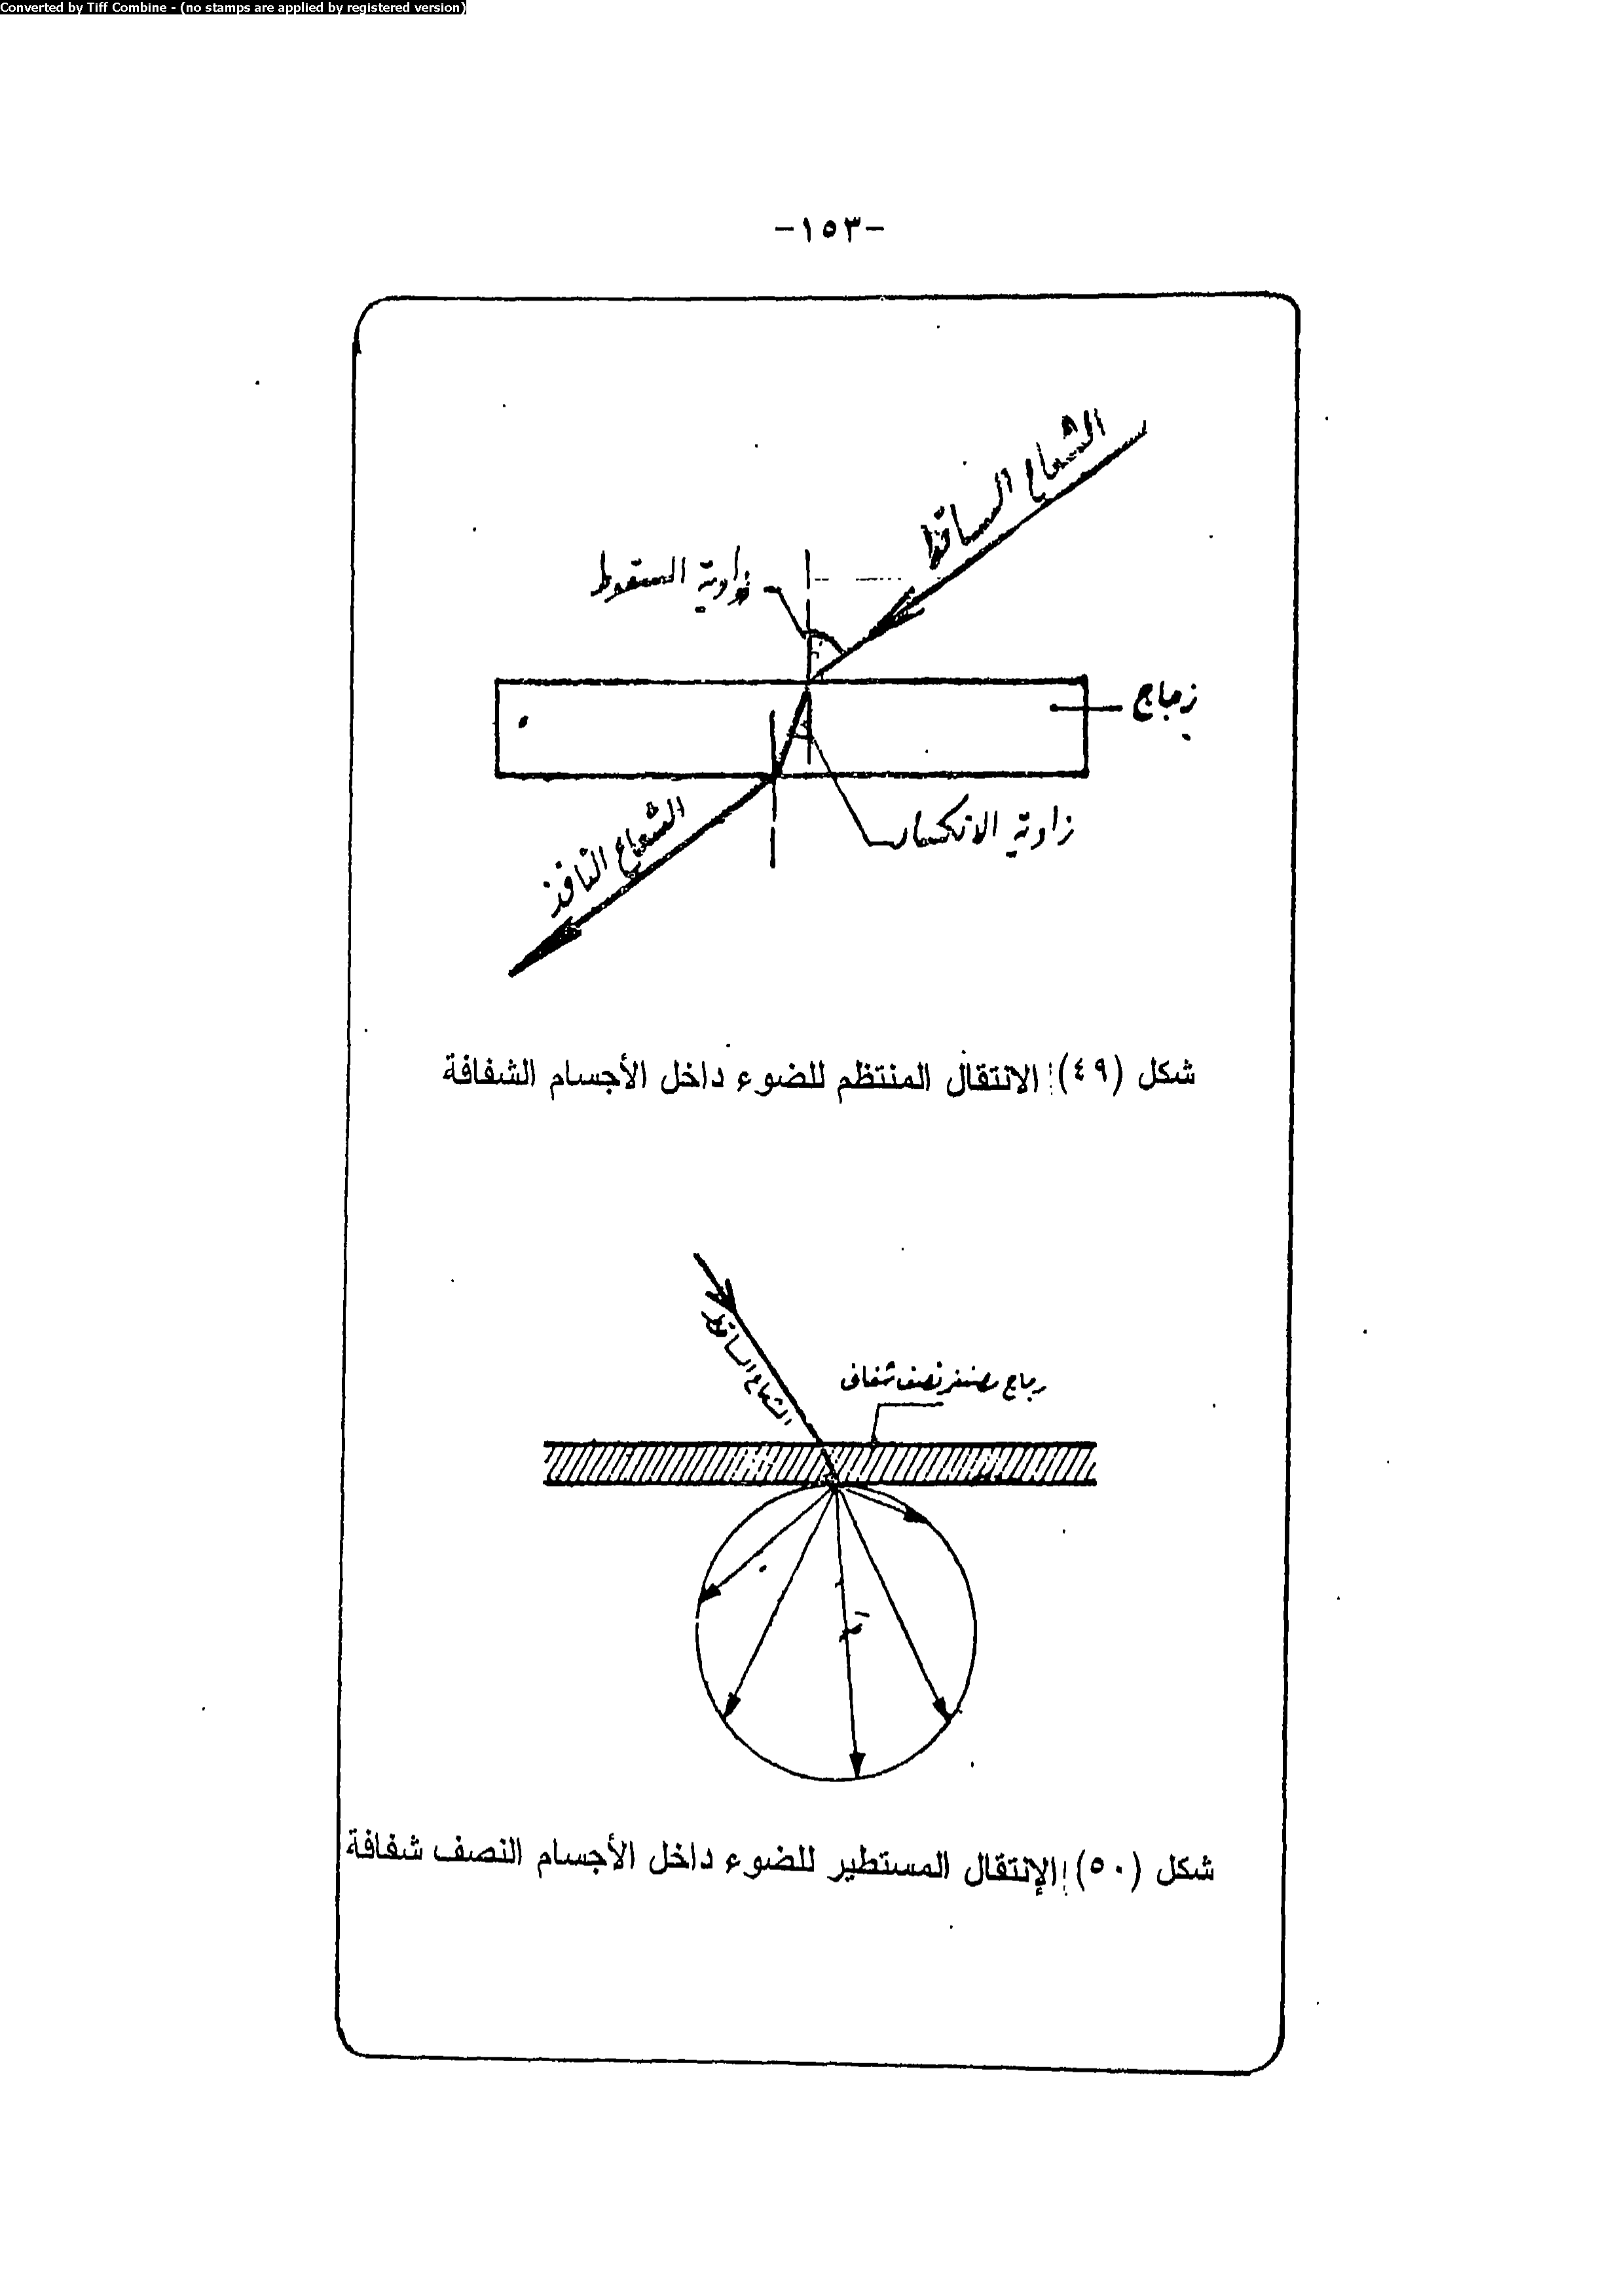 Converted by Tiff Combine - (no stamps are applied by registered version)
-١٥٣-
الشعاع الساقط
زاوية السقوط
زجاج
زاوية الانكسار
الشعاع النافذ
شكل (٤٩): الانتقال المنتظم للضوء داخل الأجسام الشفافة
الشعاع الساقط
زجاج مصنفر نصف شفاف
شكل (٥٠): الإنتقال المستطير للضوء داخل الأجسام النصف شفافة